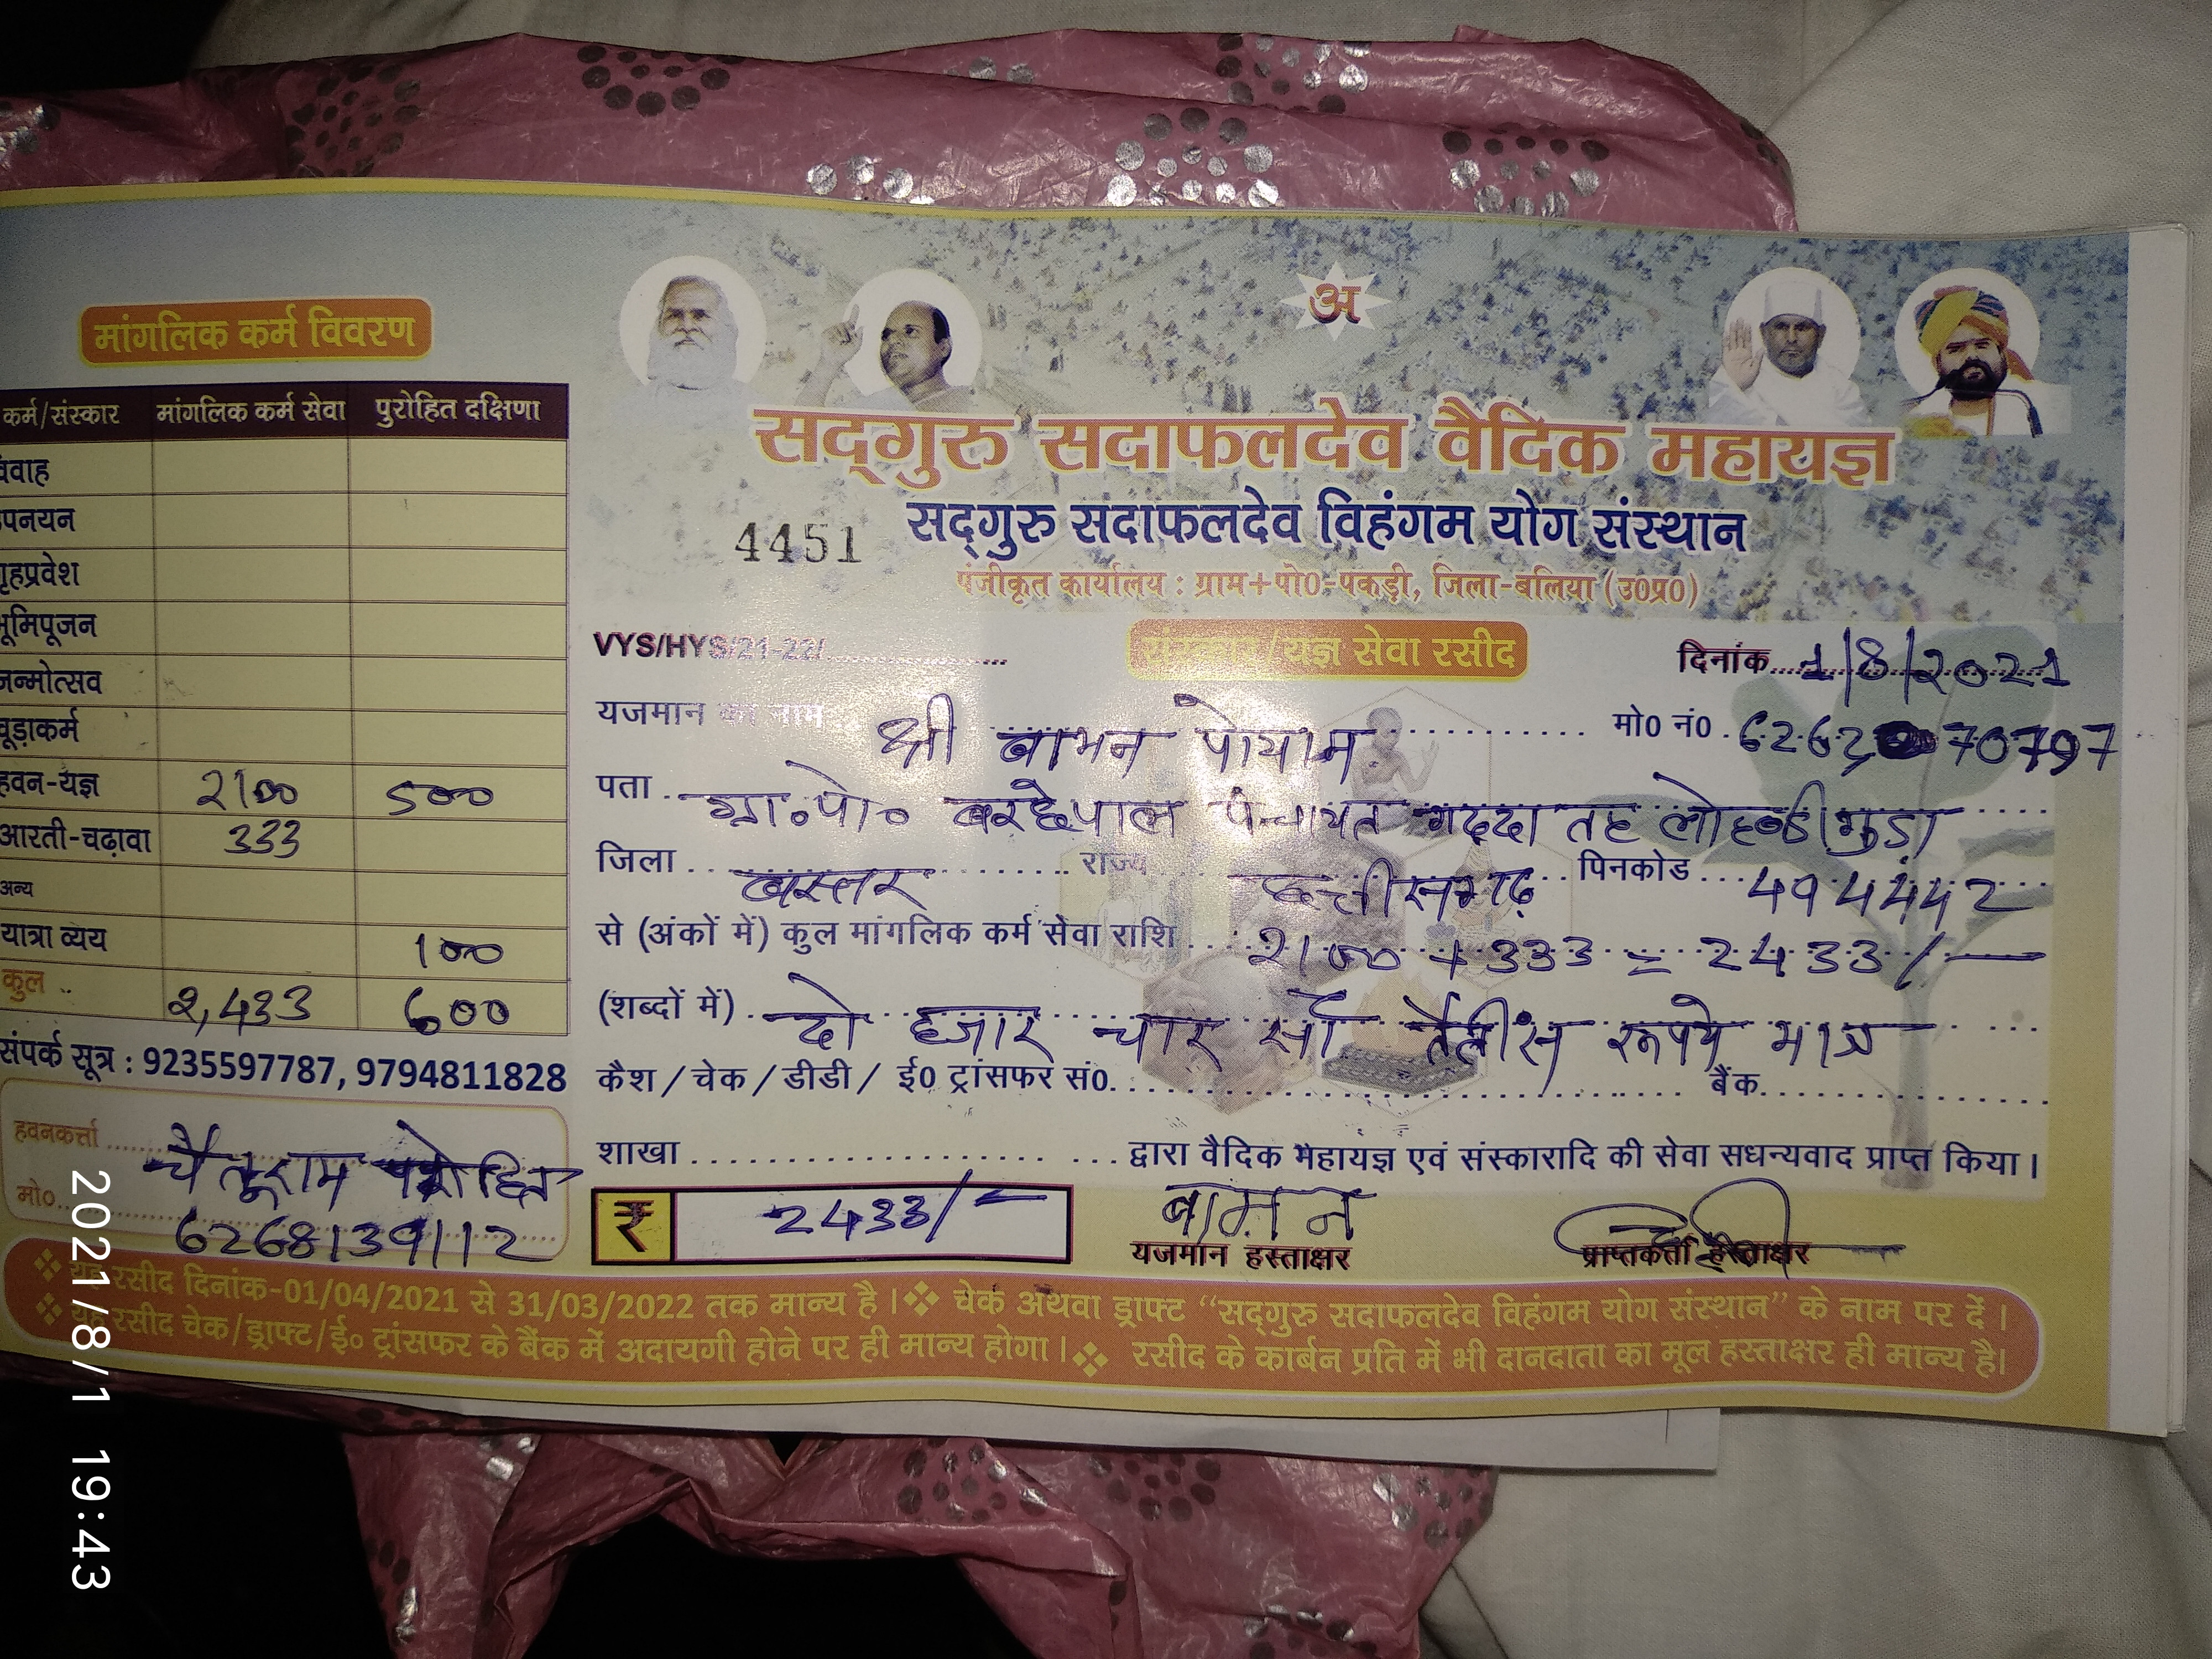 मांगलिक कर्म विवरण
कर्म/संस्कार मांगलिक कर्म सेवा पुरोहित दक्षिणा
विवाह
उपनयन
गृहप्रवेश
भूमिपूजन
जन्मोत्सव
चूड़ाकर्म
हवन-यज्ञ 2100 500
आरती-चढ़ावा 333
अन्य
यात्रा व्यय 100
कुल .. 2,433 600
संपर्क सूत्र : 9235597787, 9794811828
हवनकर्त्ता चैतुराम
मो०. 6268139112
अ
सद्गुरु सदाफलदेव वैदिक महायज्ञ
4451 सद्गुरु सदाफलदेव विहंगम योग संस्थान
पंजीकृत कार्यालय : ग्राम+पो0-पकड़ी, जिला-बलिया (उ0प्र0)
VYS/HYS/21-22/ संस्कार/यज्ञ सेवा रसीद दिनांक 1/8/2021
यजमान का नाम श्री बामन पोयाम मो0 नं0 . 6262 70797
पता . ग्रा०पो० बरछेपाल पंचायत गदद्दा तह लोहण्डीगुड़ा
जिला बस्तर राज्य छत्तीसगढ़ पिनकोड 494442
से (अंकों में) कुल मांगलिक कर्म सेवा राशि 2100 + 333 = 2433/-
(शब्दों में) दो हजार चार सौ तैतीस रूपये मात्र
कैश/चेक/डीडी/ ई0 ट्रांसफर सं0. बैंक
शाखा द्वारा वैदिक महायज्ञ एवं संस्कारादि की सेवा सधन्यवाद प्राप्त किया।
₹ 2433/- बामन
यजमान हस्ताक्षर प्राप्तकर्ता हस्ताक्षर
❖ यह रसीद दिनांक-01/04/2021 से 31/03/2022 तक मान्य है। ❖ चेक अथवा ड्राफ्ट “सद्गुरु सदाफलदेव विहंगम योग संस्थान” के नाम पर दें।
❖ यह रसीद चेक/ड्राफ्ट/ई० ट्रांसफर के बैंक में अदायगी होने पर ही मान्य होगा। ❖ रसीद के कार्बन प्रति में भी दानदाता का मूल हस्ताक्षर ही मान्य है।
2021/8/1 19:43